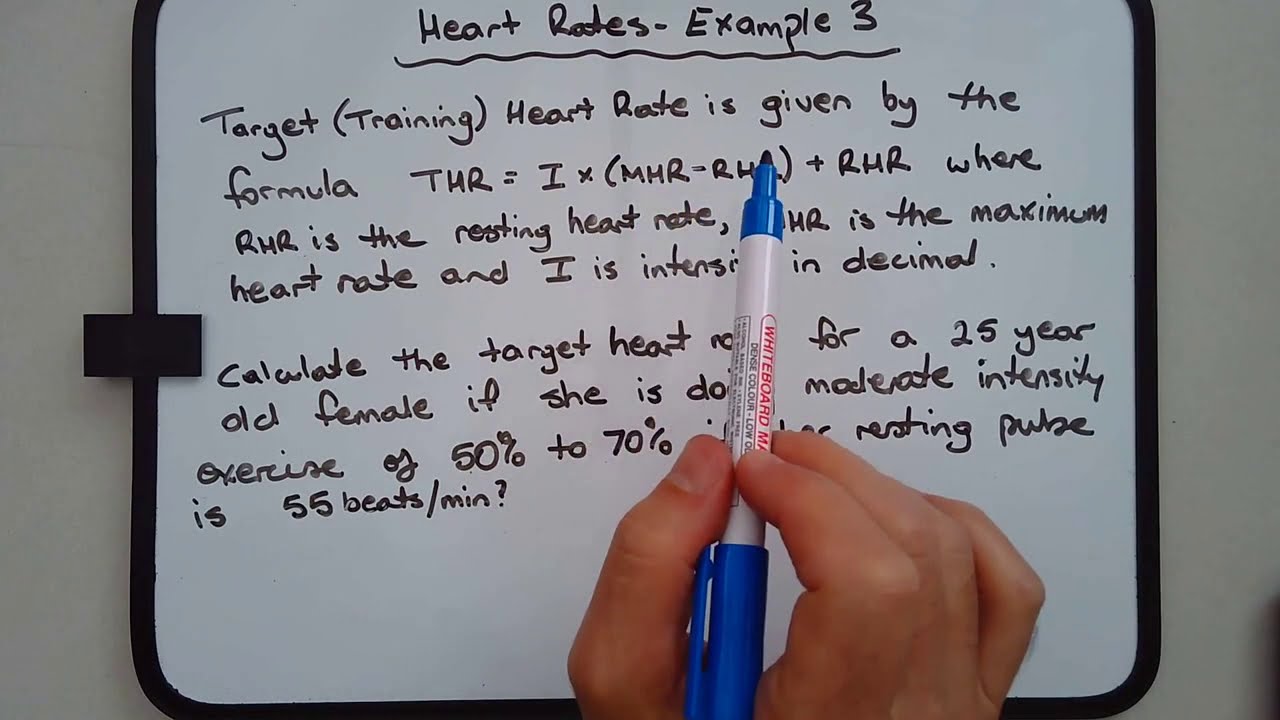 Heart Rates - Example 3
Target (Training) Heart Rate is given by the
formula THR = I × (MHR - RH ) + RHR where
RHR is the resting heart rate, HR is the maximum
heart rate and I is intensi in decimal.
Calculate the target heart for a 25 year
old female if she is doi moderate intensity
exercise of 50% to 70% resting pulse
is 55 beats/min?
WHITEBOARD MA
DENSE COLOUR - LOW OD